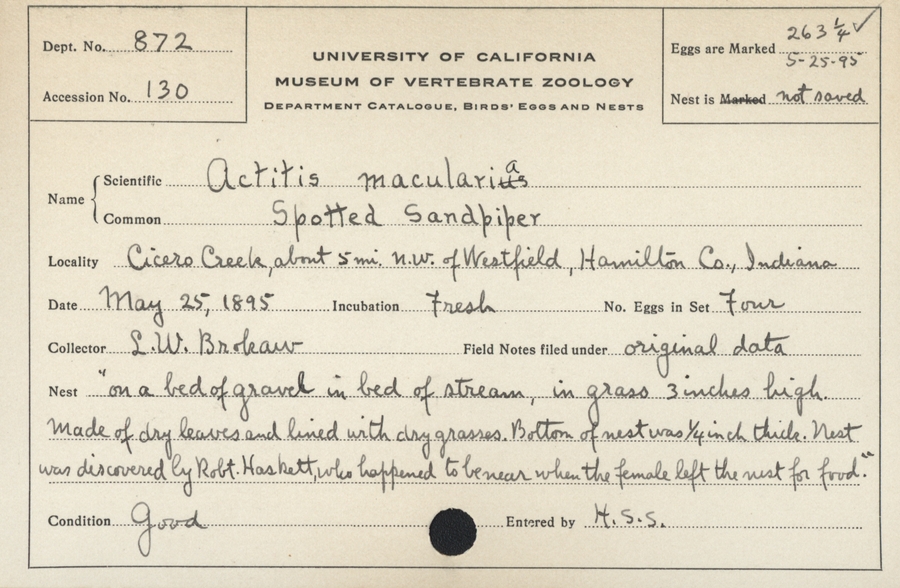 Dept. No. 872
Accession No. 130
UNIVERSITY OF CALIFORNIA
MUSEUM OF VERTEBRATE ZOOLOGY
DEPARTMENT CATALOGUE, BIRDS' EGGS AND NESTS
Eggs are Marked 263 1/4 ✓
5-25-95
Nest is Marked not saved
Name { Scientific Actitis macularius a
Common Spotted Sandpiper
Locality Cicero Creek, about 5 mi. N.W. of Westfield, Hamilton Co., Indiana
Date May 25, 1895 Incubation Fresh No. Eggs in Set Four
Collector L.W. Brokaw Field Notes filed under original data
Nest "on a bed of gravel in bed of stream, in grass 3 inches high.
Made of dry leaves and lined with dry grasses. Bottom of nest was 1/4 inch thick. Nest
was discovered by Robt. Haskett, who happened to be near when the female left the nest for food."
Condition Good Entered by H.S.S.